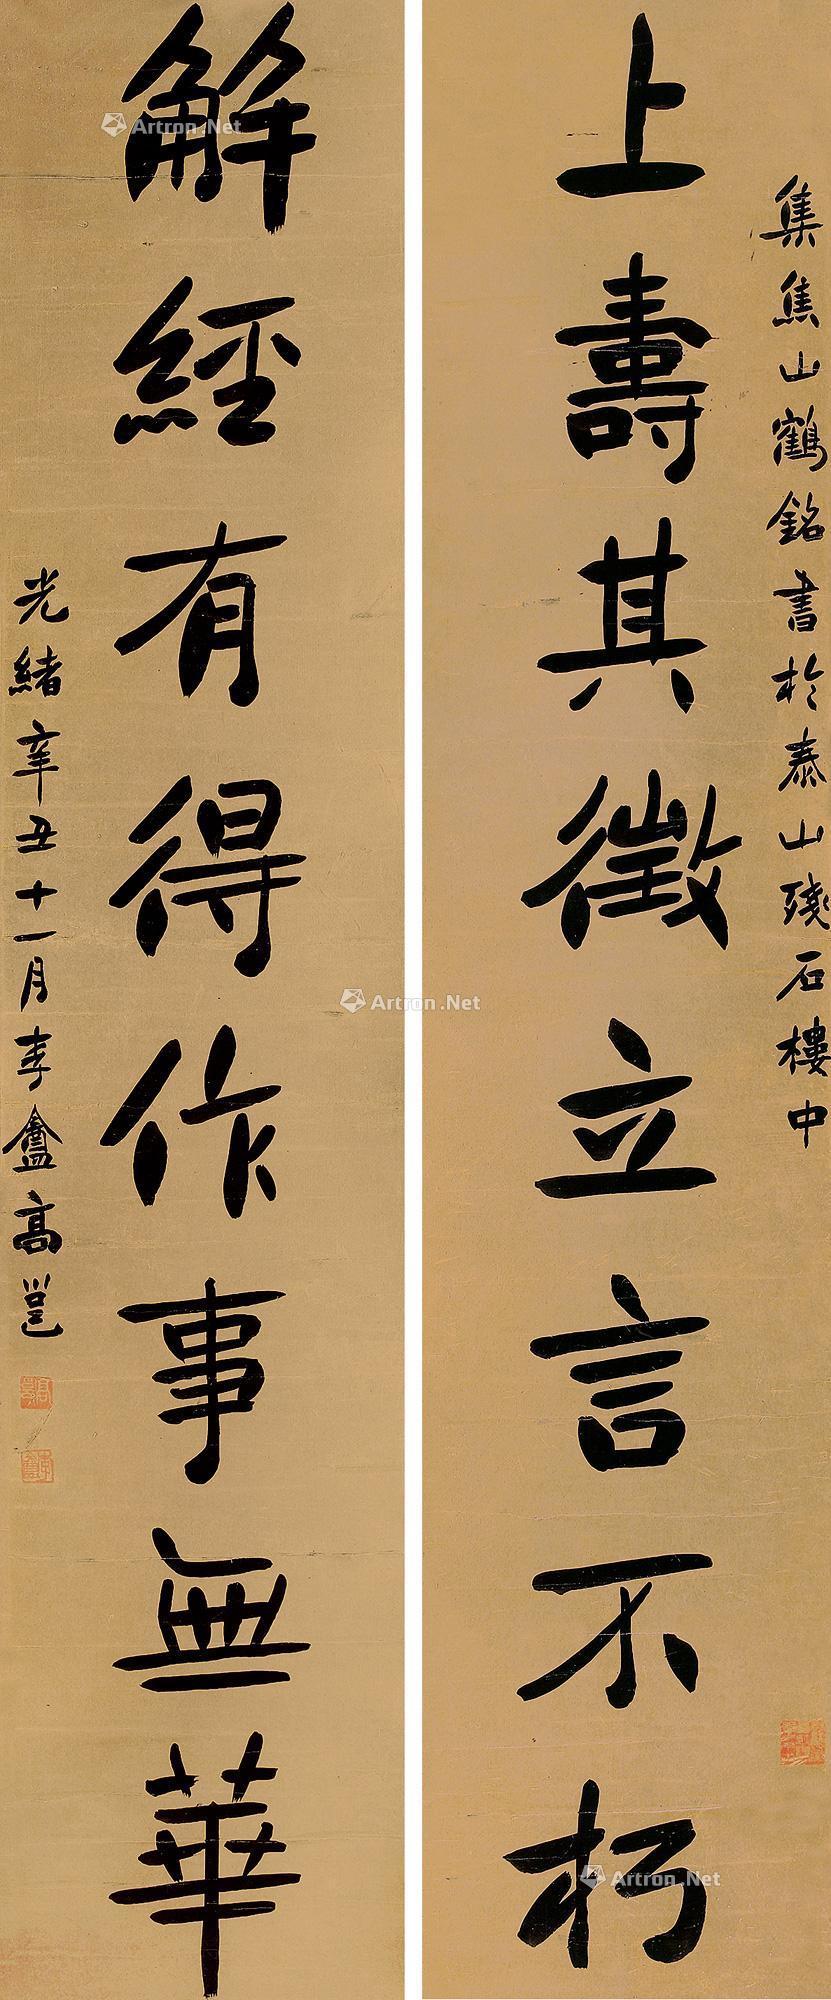 集焦山鶴銘書於泰山殘石樓中
上壽其徵立言不朽
解經有得作事無華
光緒辛丑十一月李盦高邕
Artron.Net
Artron.Net
Artron.Net